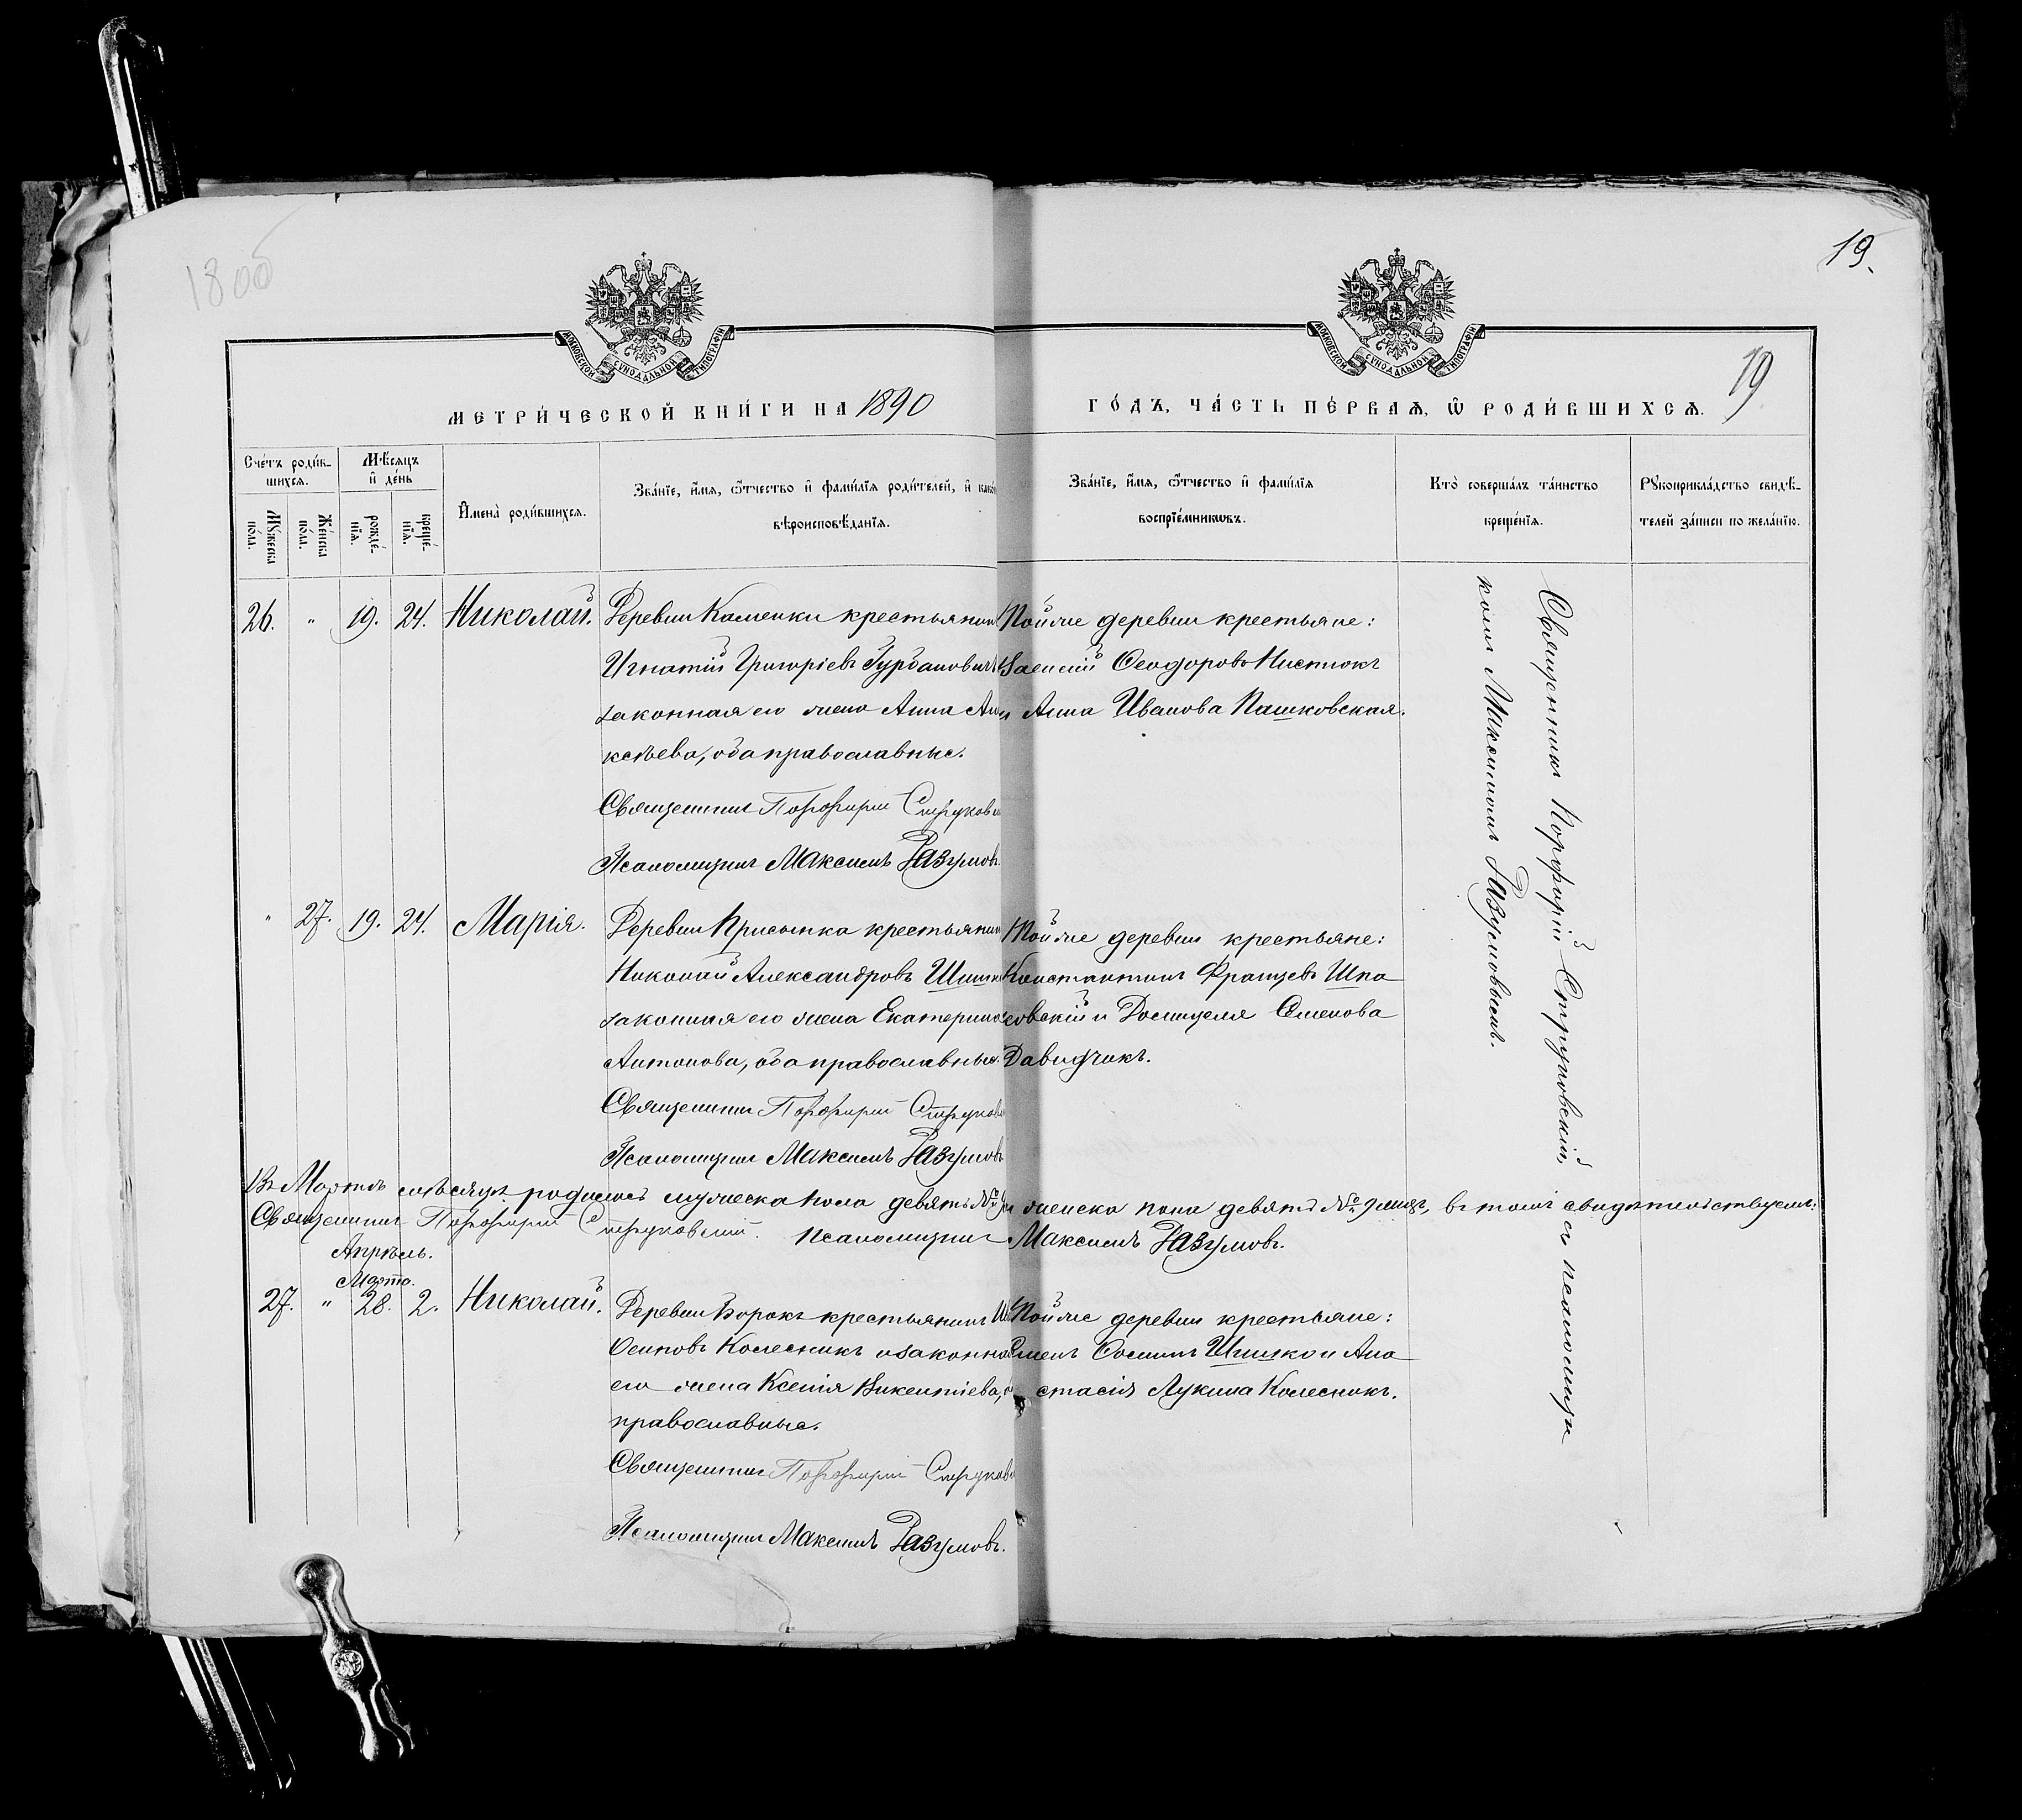 18 об
19.
МОСКОВСКОЙ СѴНОДАЛЬНОЙ ТИПОГРАФІИ
МОСКОВСКОЙ СѴНОДАЛЬНОЙ ТИПОГРАФІИ
19
МЕТРИ́ЧЕСКОЙ КНИ́ГИ НА 1890
ГО́ДЪ, ЧА́СТЬ ПЕ́РВАѦ, Ѡ҆ РОДИ́ВШИХСѦ.
Сче́тъ роди́в-
шихсѧ.
Мꙋ́жеска по́ла.
Же́нска по́ла.
Мѣ́сѧцъ
и҆ де́нь
рожде́-
нїѧ.
креще́-
нїѧ.
И҆мена̀ роди́вшихсѧ.
Зва́нїе, и҆́мѧ, ѻ҆́тчество и҆ фами́лїѧ роди́телей, и҆
вѣроисповѣ́данїѧ.
Зва́нїе, и҆́мѧ, ѻ҆́тчество и҆ фами́лїѧ
воспрїе́мникѡвъ.
Кто̀ соверша́лъ та́инство
креще́нїѧ.
Рꙋкоприкла́дство свидѣ́-
телей за́писи по жела́нїю.
26. " 19. 24. Николай.
Деревни Каменки крестьянинъ
Игнатій Григоріевъ Гурбановичъ
законная его жена Анна Але
ксѣева, оба православные.
Священникъ Порфирій Струковск
Псаломщикъ Максимъ Разумовъ.
Той же деревни крестьяне:
Ѳеодоровъ
и Анна Иванова Пашковская.
" 27. 19. 24. Марія.
Деревни Присынка крестьянин
Николай Александровъ Шишк
законная его жена Екатерина
Антонова, оба православные.
Священникъ Порфирій Струковс
Псаломщикъ Максимъ Разумовъ
Той же деревни крестьяне:
Константинъ Францевъ Шпа
ковскій и Домицеля Семенова
Давидчикъ.
Въ Мартѣ мѣсяцѣ родилось мужеска пола девять № 9 и женска пола девять № 9 лицъ, въ томъ свидѣтельствуемъ:
Священникъ Порфирій Струковскій. Псаломщикъ Максимъ Разумовъ.
Апрѣль.
Марта.
27. " 28. 2. Николай.
Деревни Борокъ крестьянинъ
Осиповъ Колесникъ и законна
его жена Ксенія Викентіева,
православные.
Священникъ Порфирій Струковс
Псаломщикъ Максимъ Разумовъ.
Той же деревни крестьяне:
Осиповъ Шишко и Ана
стасія Лукина Колесникъ.
Священникъ Порфирій Струковскій, съ псаломщи
комъ Максимомъ Разумовымъ.